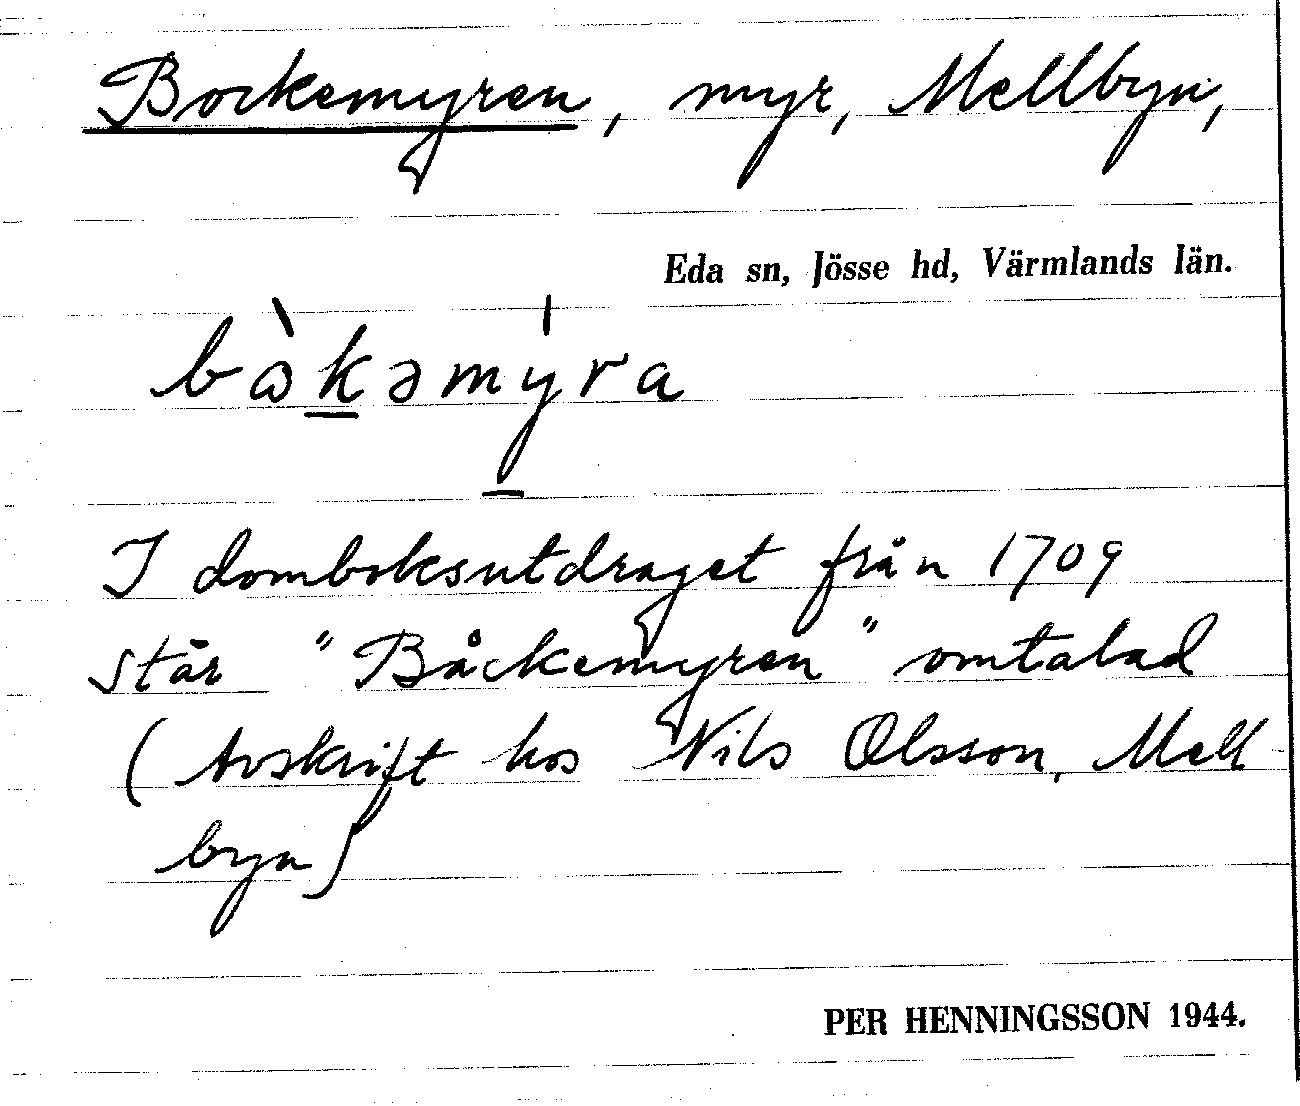 Bockemyren, myr, Mellbyn,
Eda sn, Jösse hd, Värmlands län.
bɷ̀kəmýra
I domboksutdraget från 1709
står "Båckemyren" omtalad
(Avskrift hos Nils Olsson, Mell
byn)
PER HENNINGSSON 1944.